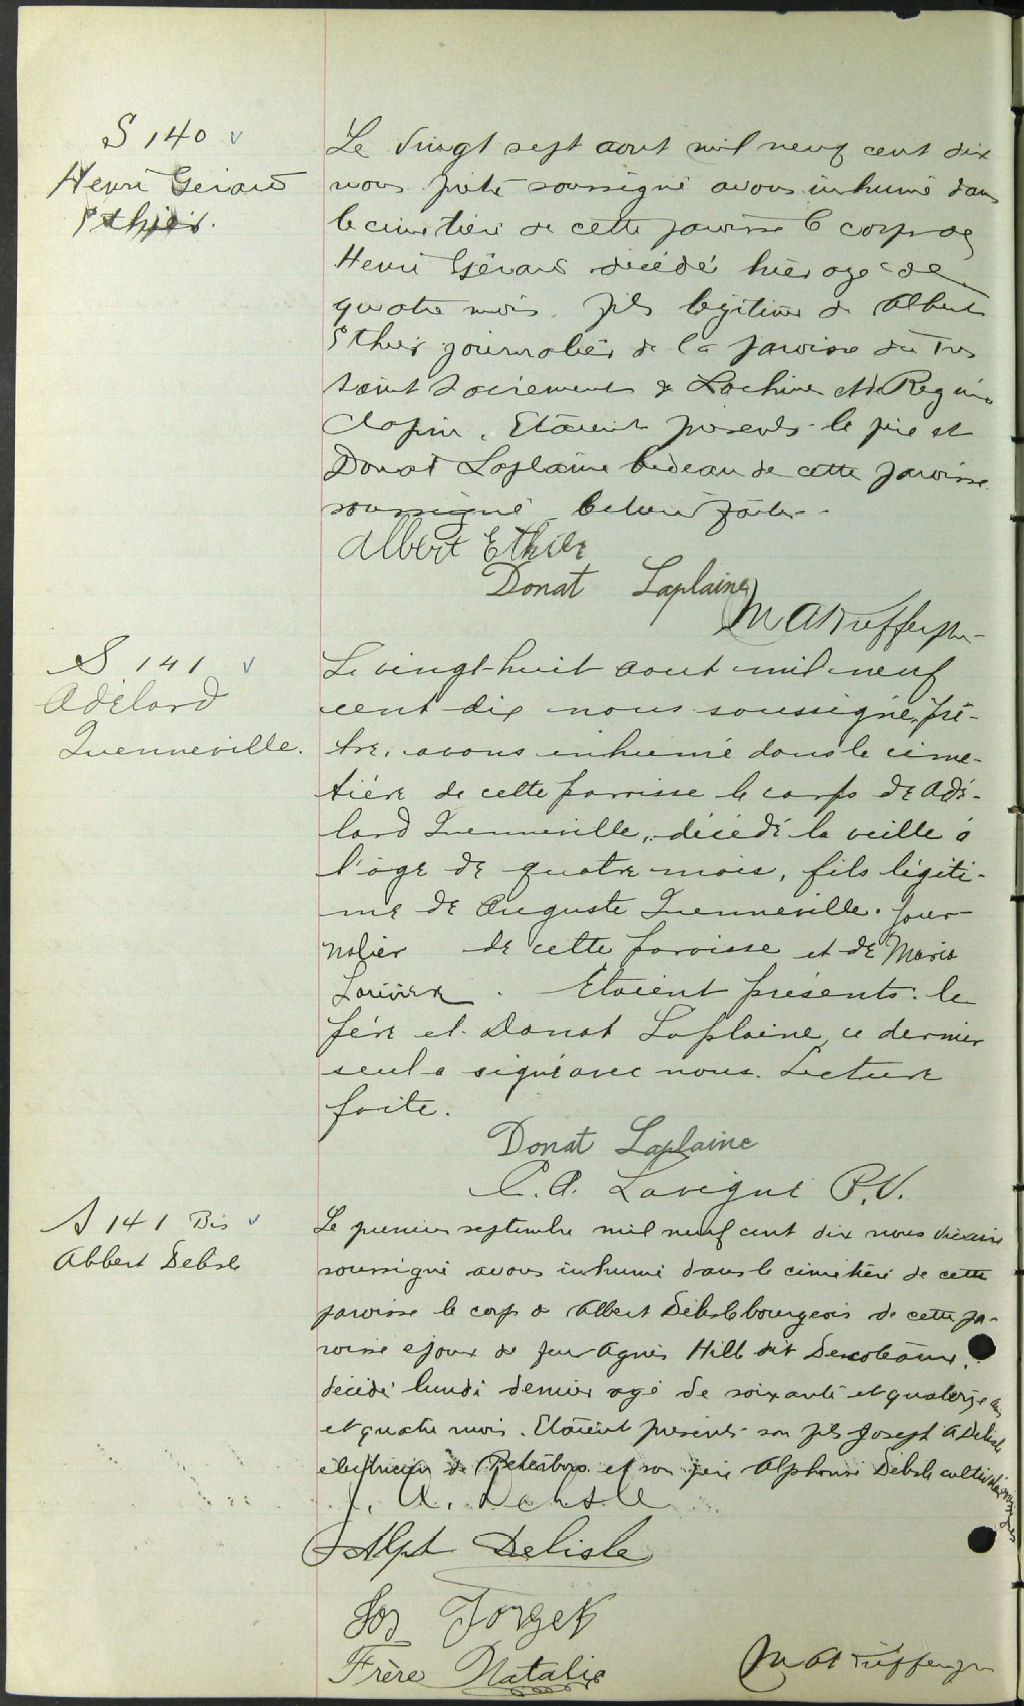 S 140 v
Henri Gérard
Ethier.
Le vingt sept aout mil neuf cent dix
nous prêtre soussigné avons inhumé dans
le cimetière de cette paroisse le corps de
Henri Gérard décédé hier age de
quatre mois. fils légitime de Albert
Ethier journalier de la paroisse du Tres
Saint Sacrement de Lachine et de Regina
. Etaient présents le père et
Donat Laplaine bedeau de cette paroisse
soussigné lecture faite.
Albert Ethier
Donat Laplaine
S 141 v
Adélard
Quenneville.
Le vingt-huit aout mil neuf
cent dix nous soussigné, prê-
tre, avons inhumé dans le cime-
tière de cette paroisse le corps de Adé-
lard Quenneville, décédé la veille à
l'âge de quatre mois, fils légiti-
me de Auguste Quenneville. jour-
nalier de cette paroisse et de Maria
. Etaient présents: le
père et Donat Laplaine, ce dernier
seul a signé avec nous. Lecture
faite.
Donat Laplaine
C. A. Lavigne P. V.
S 141 Bis v
Albert Delisle
Le premier septembre mil neuf cent dix nous vicaire
soussigné avons inhumé dans le cimetière de cette
paroisse le corps de Albert Delisle bourgeois de cette pa-
roisse époux de feu Agnès Hill dit
décédé lundi dernier agé de soixante et quatorze ans
et quatre mois. Etaient présents son fils Joseph A Delisle
électricien de Peterboro et son frère Alphonse Delisle cultivateur soussignés
J. A. Delisle
Alph Delisle
Jos Forget
Frère Natalis